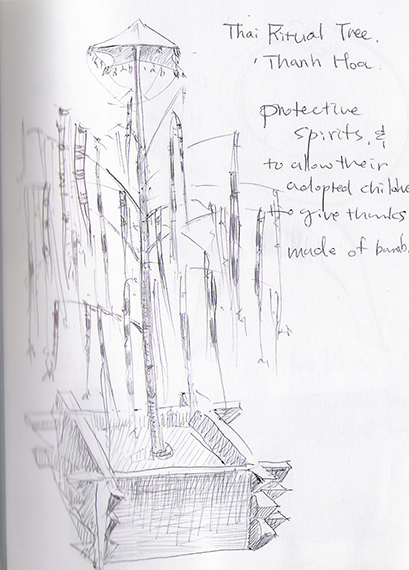 Thai Ritual Tree.
Thanh Hoa
protective
spirits, &
to allow their
adopted childre
to give thanks
made of bamb